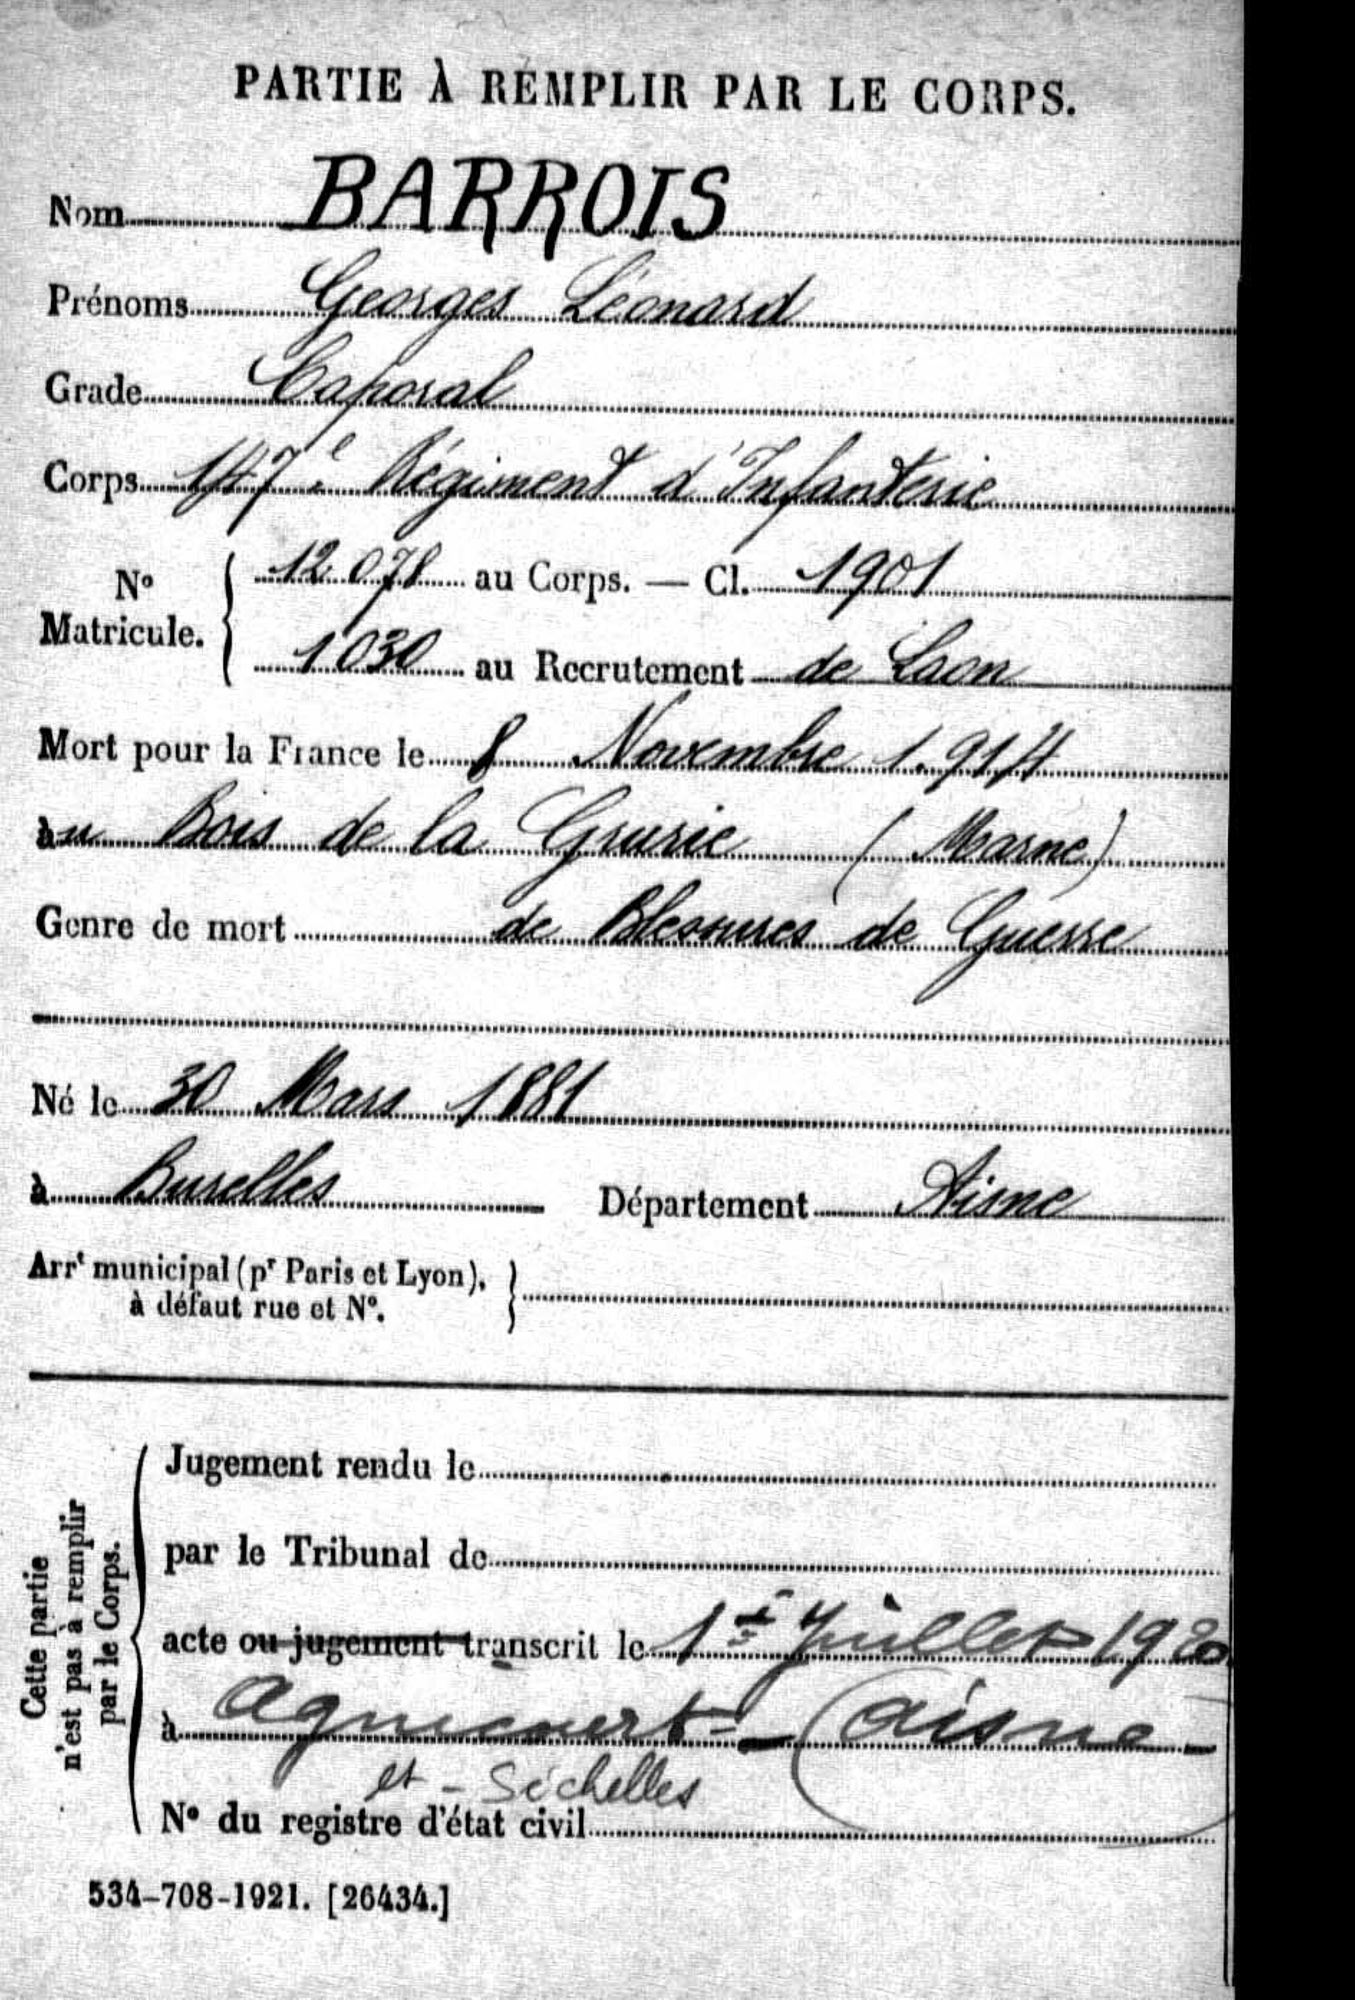 PARTIE À REMPLIR PAR LE CORPS.
Nom BARROIS
Prénoms Georges Léonard
Grade Caporal
Corps 147e Régiment d'Infanterie
No Matricule. { 12.078 au Corps. — Cl. 1901
1030 au Recrutement de Laon
Mort pour la France le 8 Novembre 1.914
au Bois de la Grurie (Marne)
Genre de mort de Blessures de Guerre
Né le 30 Mars 1881
à Burelles Département Aisne
Arrt municipal (pr Paris et Lyon), }
à défaut rue et No.
Cette partie
n'est pas à remplir
par le Corps.
Jugement rendu le
par le Tribunal de
acte ou jugement transcrit le 1er Juillet 1920
à Agnicourt - (Aisne -
et - Séchelles
No du registre d'état civil
534-708-1921. [26434.]